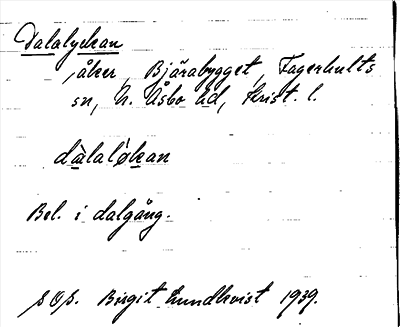 Dalalyckan
, åker, Bjärabygget, Fagerhults
sn, N. Åsbo hd, Krist. l.
dàlalỳkan
Bel. i dalgång.
Birgit Lundkvist 1939.